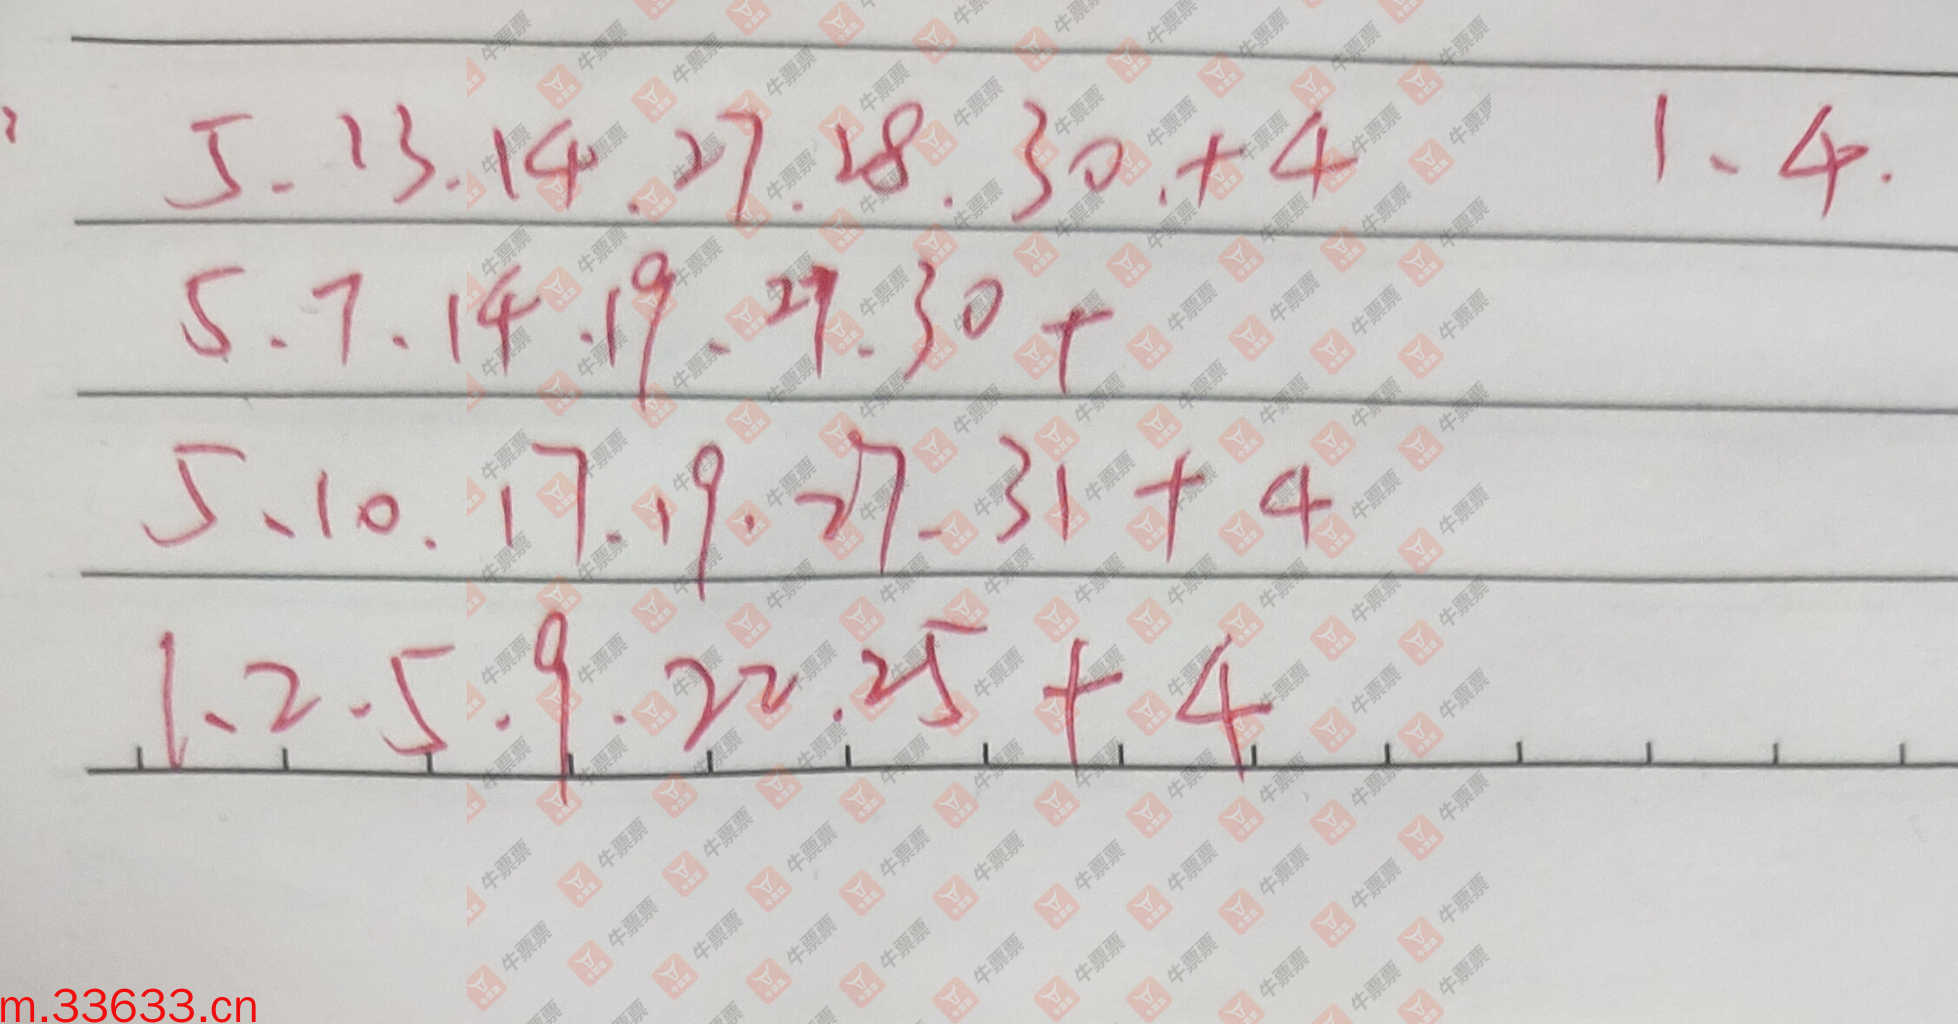 5.13.14.27.28.30.+4 1.4.
5.7.14.19.27.30+
5.10.17.19.27.31+4
1.2.5.9.22.25+4
m.33633.cn
牛票票